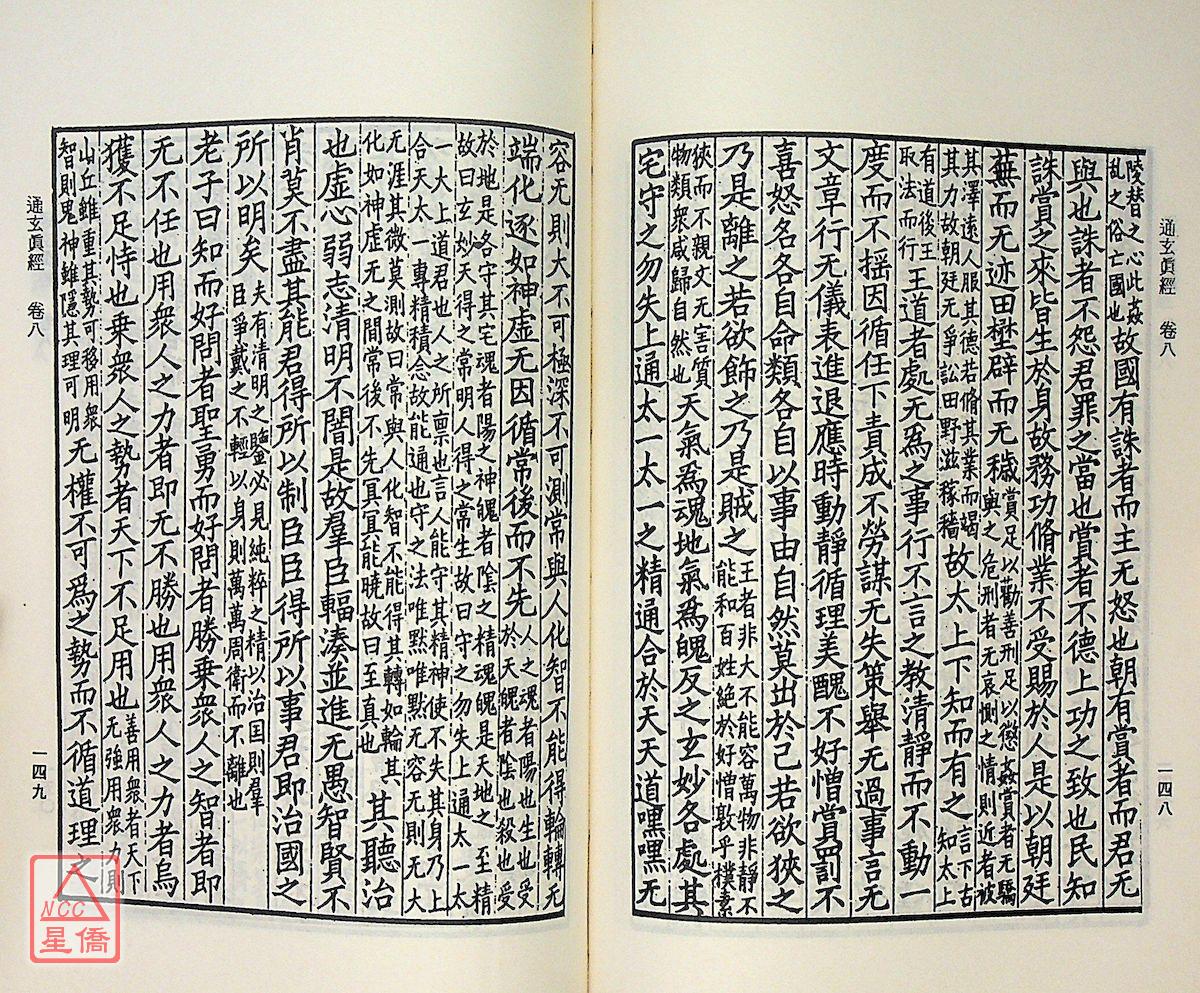 通玄眞經　卷八
一四八
陵替之心此姦
亂之俗亡國也
故國有誅者而主无怒也朝有賞者而君无
與也誅者不怨君罪之當也賞者不德上功之致也民知
誅賞之來皆生於身故務功脩業不受賜於人是以朝廷
蕪而无迹田壄辟而无穢
賞足以勸善刑足以懲姦賞者无驕
與之危刑者无哀惻之情則近者被
其澤遠人服其德若脩其業而竭
其力故朝廷无爭訟田野滋稼穡
故太上下知而有之
言下古
知太上
有道後王
取法而行
王道者處无爲之事行不言之教清靜而不動一
度而不搖因循任下責成不勞謀无失策舉无過事言无
文章行无儀表進退應時動靜循理美醜不好憎賞罰不
喜怒名各自命類各自以事由自然莫出於己若欲狹之
乃是離之若欲飾之乃是賊之
王者非大不能容萬物非靜不
能和百姓絶於好憎敦乎樸素
狹而不親文无害質
物類衆咸歸自然也
天氣爲魂地氣爲魄反之玄妙各處其
宅守之勿失上通太一太一之精通合於天天道嘿嘿无
容无則大不可極深不可測常與人化智不能得輪轉无
端化逐如神虛无因循常後而不先
人之魂者陽也生也受
於天魄者陰也殺也受
於地是各守其宅魂者陽之神魄者陰之精魂魄是天地之至精
故曰玄妙天得之常明人得之常生故曰守之勿失上通太一太
一大上道君也人之所禀也言人能守其精神使不失其身乃上
合天太一專精積念故能通也守之法唯默唯默无容无則无大
无涯其微莫測故曰常與人化智不能得其轉如輪其
化如神虛无之間常後不先冥冥能曉故曰至真也
其聽治
也虛心弱志清明不闇是故羣臣輻湊並進无愚智賢不
肖莫不盡其能君得所以制臣臣得所以事君即治國之
所以明矣
夫有清明之鑒必見純粹之精以治国則羣
臣爭戴之不輕以身則萬萬周衛而不離也
老子曰知而好問者聖勇而好問者勝乗衆人之智者即
无不任也用衆人之力者即无不勝也用衆人之力者烏
獲不足恃也乗衆人之勢者天下不足用也
善用衆者天下
无強用衆力則
山丘雖重其勢可移用衆
智則鬼神雖隱其理可明
无權不可爲之勢而不循道理之
通玄眞經　卷八
一四九
NCC
星僑